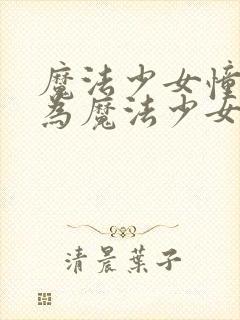 魔法少女憧
為魔法少女
清晨葉子